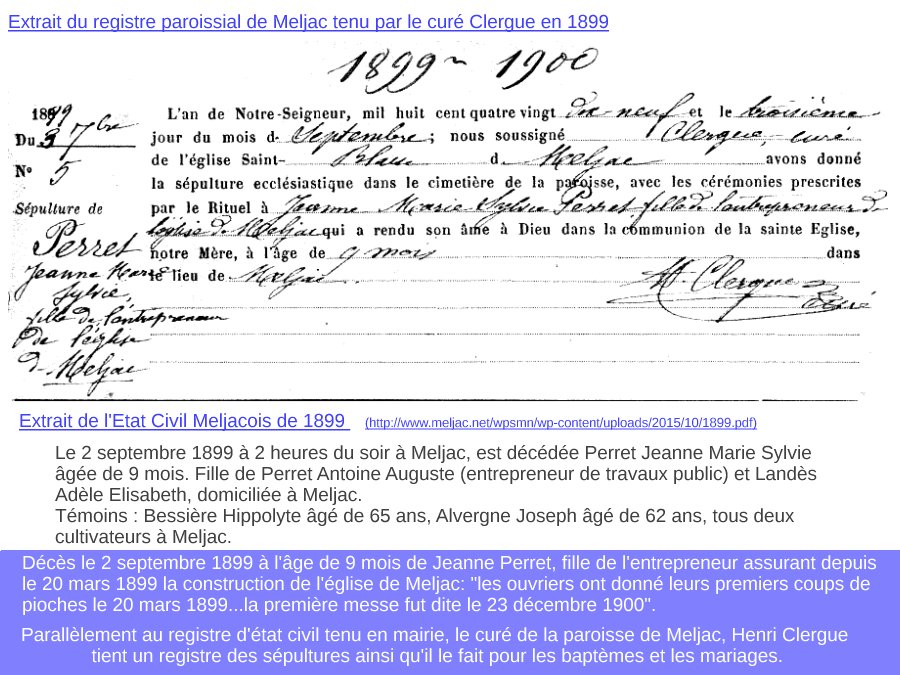 Extrait du registre paroissial de Meljac tenu par le curé Clergue en 1899
1899 ~ 1900
1899
Du 3 7bre
N° 5
Sépulture de
Perret
Jeanne Marie
Sylvie,
fille de l'entrepreneur
de l'église
de Meljac
L'an de Notre-Seigneur, mil huit cent quatre vingt dix neuf et le troisième
jour du mois d- Septembre; nous soussigné Clergue, curé
de l'église Saint- Blaise d- Meljac avons donné
la sépulture ecclésiastique dans le cimetière de la paroisse, avec les cérémonies prescrites
par le Rituel à Jeanne Marie Sylvie Perret fille de l'entrepreneur de
l'église de Meljac qui a rendu son âme à Dieu dans la communion de la sainte Eglise,
notre Mère, à l'âge de 9 mois dans
le lieu de Meljac
H. Clergue
curé
Extrait de l'Etat Civil Meljacois de 1899 (http://www.meljac.net/wpsmn/wp-content/uploads/2015/10/1899.pdf)
Le 2 septembre 1899 à 2 heures du soir à Meljac, est décédée Perret Jeanne Marie Sylvie
âgée de 9 mois. Fille de Perret Antoine Auguste (entrepreneur de travaux public) et Landès
Adèle Elisabeth, domiciliée à Meljac.
Témoins : Bessière Hippolyte âgé de 65 ans, Alvergne Joseph âgé de 62 ans, tous deux
cultivateurs à Meljac.
Décès le 2 septembre 1899 à l'âge de 9 mois de Jeanne Perret, fille de l'entrepreneur assurant depuis
le 20 mars 1899 la construction de l'église de Meljac: "les ouvriers ont donné leurs premiers coups de
pioches le 20 mars 1899...la première messe fut dite le 23 décembre 1900".
Parallèlement au registre d'état civil tenu en mairie, le curé de la paroisse de Meljac, Henri Clergue
tient un registre des sépultures ainsi qu'il le fait pour les baptèmes et les mariages.